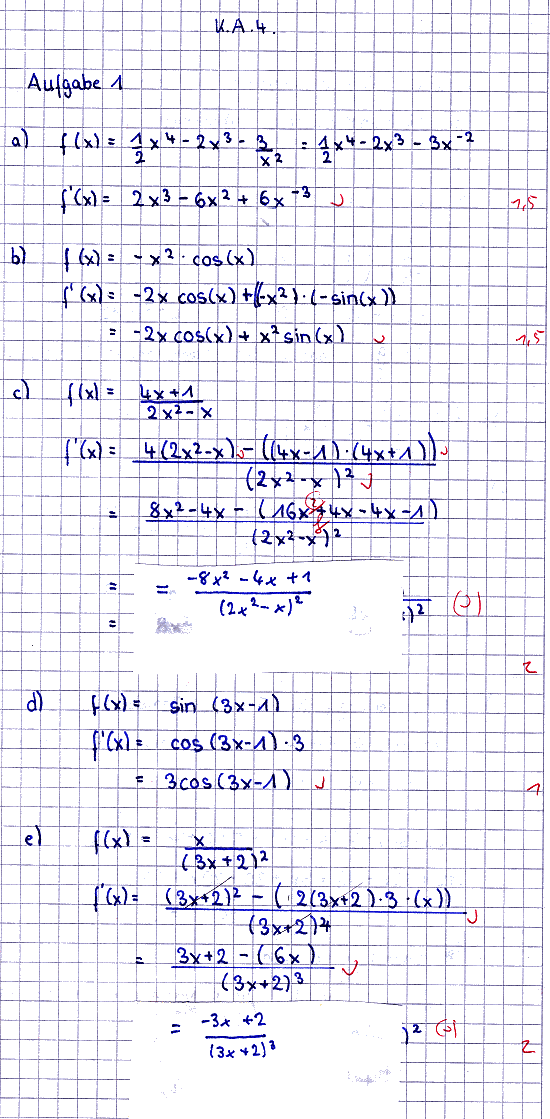 K.A.4.
Aufgabe 1
a) f(x) = 1/2 x⁴ - 2x³ - 3/x² = 1/2 x⁴ - 2x³ - 3x⁻²
f'(x) = 2x³ - 6x² + 6x⁻³ 1,5
b) f(x) = -x² · cos(x)
f'(x) = -2x cos(x) + (-x²) · (-sin(x))
= -2x cos(x) + x² sin(x) 1,5
c) f(x) = (4x+1)/(2x²-x)
f'(x) = (4(2x²-x) - ((4x-1)·(4x+1)))/(2x²-x)²
= (8x²-4x - (16x²+4x-4x-1))/(2x²-x)²
= = (-8x²-4x+1)/(2x²-x)² x)²
=
2
d) f(x) = sin (3x-1)
f'(x) = cos(3x-1)·3
= 3cos(3x-1) 1
e) f(x) = x/(3x+2)²
f'(x) = ((3x+2)² - (2(3x+2)·3·(x)))/(3x+2)⁴
= (3x+2-(6x))/(3x+2)³
= (-3x+2)/(3x+2)³ )²
2